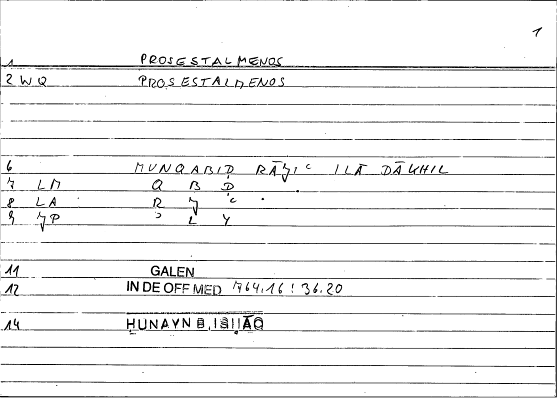 1
1 PROSESTALMENOS
2 WQ PROSESTALMENOS
6 MUNQABIḌ RĀJIʿ ILĀ DĀKHIL
7 LM Q B Ḍ .
8 LA R J ʿ .
9 JP ʾ L Y
11 GALEN
12 IN DE OFF MED 764.16 : 36.20
14 ḤUNAYN B. ISḤĀQ